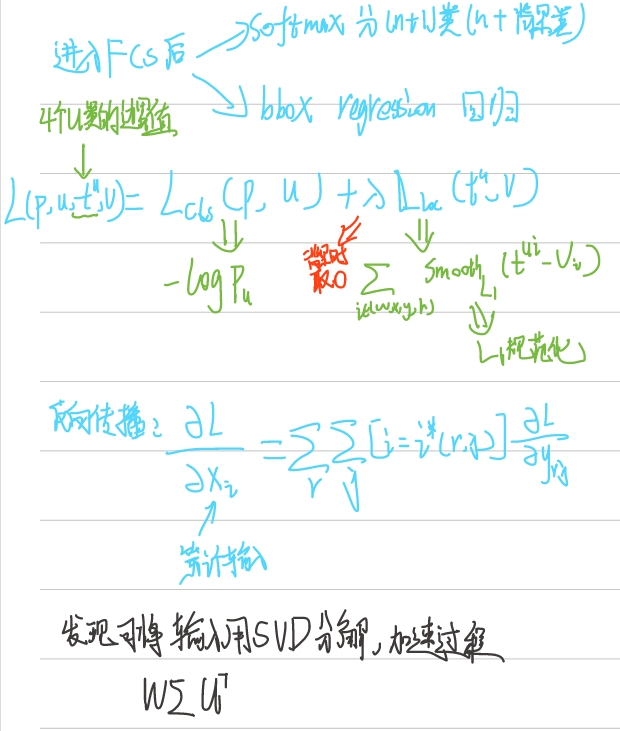 进入FCS后
softmax 分(n+1)类(n+背景类)
bbox regression 回归
4个u类的边界值
L(p,u,t^u,v)= L_cls(p,u)+λL_loc(t^u,v)
-log P_u
背景时取0
∑_{i∈(w,x,y,h)} smooth_{L1}(t^{ui}-v_i)
L1规范化
反向传播: ∂L/∂x_i = ∑_r ∑_j [i=i*(r,j)] ∂L/∂y_{rj}
累计输入
发现可将输入用SVD分解,加速过程
W∑U^T